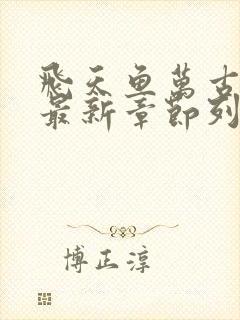 飛天魚萬古
最新章節列
博正淳